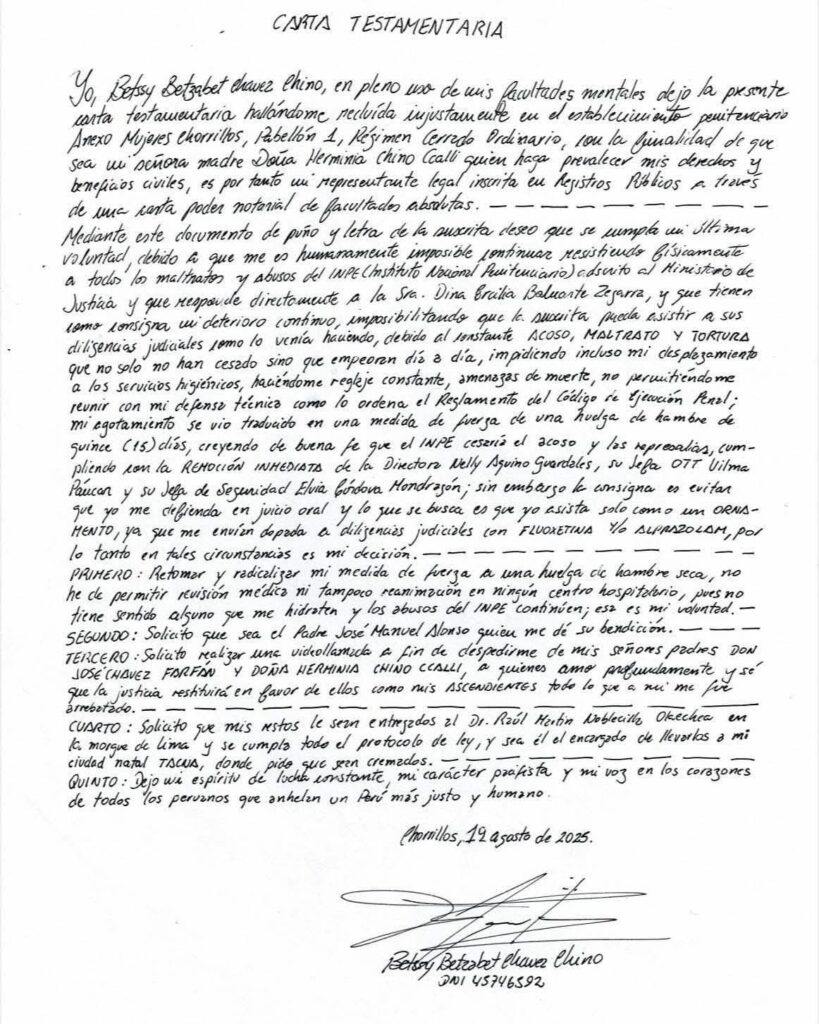 CARTA TESTAMENTARIA
Yo, Betssy Betzabet Chavez Chino, en pleno uso de mis facultades mentales dejo la presente
carta testamentaria hallándome recluída injustamente en el establecimiento penitenciario
Anexo Mujeres Chorrillos, Pabellón 1, Régimen Cerrado Ordinario, con la finalidad de que
sea mi señora madre Doña Herminia Chino Ccalli quien haga prevalecer mis derechos y
beneficios civiles, es por tanto mi representante legal inscrita en Registros Públicos a través
de una carta poder notarial de facultades absolutas. — — — — — — — — — —
Mediante este documento de puño y letra de la suscrita deseo que se cumpla mi última
voluntad, debido a que me es humanamente imposible continuar resistiendo físicamente
a todos los maltratos y abusos del INPE (Instituto Nacional Penitenciario) adscrito al Ministerio de
Justicia y que responde directamente a la Sra. Dina Ercilia Boluarte Zegarra, y que tienen
como consigna mi deterioro continuo, imposibilitando que la suscrita pueda asistir a sus
diligencias judiciales como lo venía haciendo, debido al constante ACOSO, MALTRATO Y TORTURA
que no solo no han cesado sino que empeoran día a día, impidiendo incluso mi desplazamiento
a los servicios higiénicos, haciéndome reglaje constante, amenazas de muerte, no permitiéndome
reunir con mi defensa técnica como lo ordena el Reglamento del Código de Ejecución Penal;
mi agotamiento se vio traducido en una medida de fuerza de una huelga de hambre de
quince (15) días, creyendo de buena fe que el INPE cesaría el acoso y las represalias, cum-
pliendo con la REMOCIÓN INMEDIATA de la Directora Nelly Aquino Guardales, su Jefa OTT Vilma
Páucar y su Jefa de Seguridad Elvia Córdova Mondragón; sin embargo la consigna es evitar
que yo me defienda en juicio oral y lo que se busca es que yo asista solo como un ORNA-
MENTO, ya que me envían dopada a diligencias judiciales con FLUOXETINA Y/O ALPRAZOLAM, por
lo tanto en tales circunstancias es mi decisión. — — — — — — — — — — — —
PRIMERO: Retomar y radicalizar mi medida de fuerza a una huelga de hambre seca, no
he de permitir revisión médica ni tampoco reanimación en ningún centro hospitalario, pues no
tiene sentido alguno que me hidraten y los abusos del INPE continúen; esa es mi voluntad. —
SEGUNDO: Solicito que sea el Padre José Manuel Alonso quien me dé su bendición. — — — —
TERCERO: Solicito realizar una videollamada a fin de despedirme de mis señores padres DON
JOSÉ CHAVEZ FARFÁN Y DOÑA HERMINIA CHINO CCALLI, a quienes amo profundamente y sé
que la justicia restituirá en favor de ellos como mis ASCENDIENTES todo lo que a mí me fue
arrebatado. — — — — — — — — — — — — — — — — — —
CUARTO: Solicito que mis restos le sean entregados al Dr. Raúl Martín Noblecilla Olaechea en
la morgue de Lima y se cumpla todo el protocolo de ley, y sea él el encargado de llevarlos a mi
ciudad natal TACNA, donde pido que sean cremados. — — — — — — — — — —
QUINTO: Dejo mi espíritu de lucha constante, mi carácter pacifista y mi voz en los corazones
de todos los peruanos que anhelan un Perú más justo y humano.
Chorrillos, 19 agosto de 2025.
Betssy Betzabet Chavez Chino
DNI 45746592